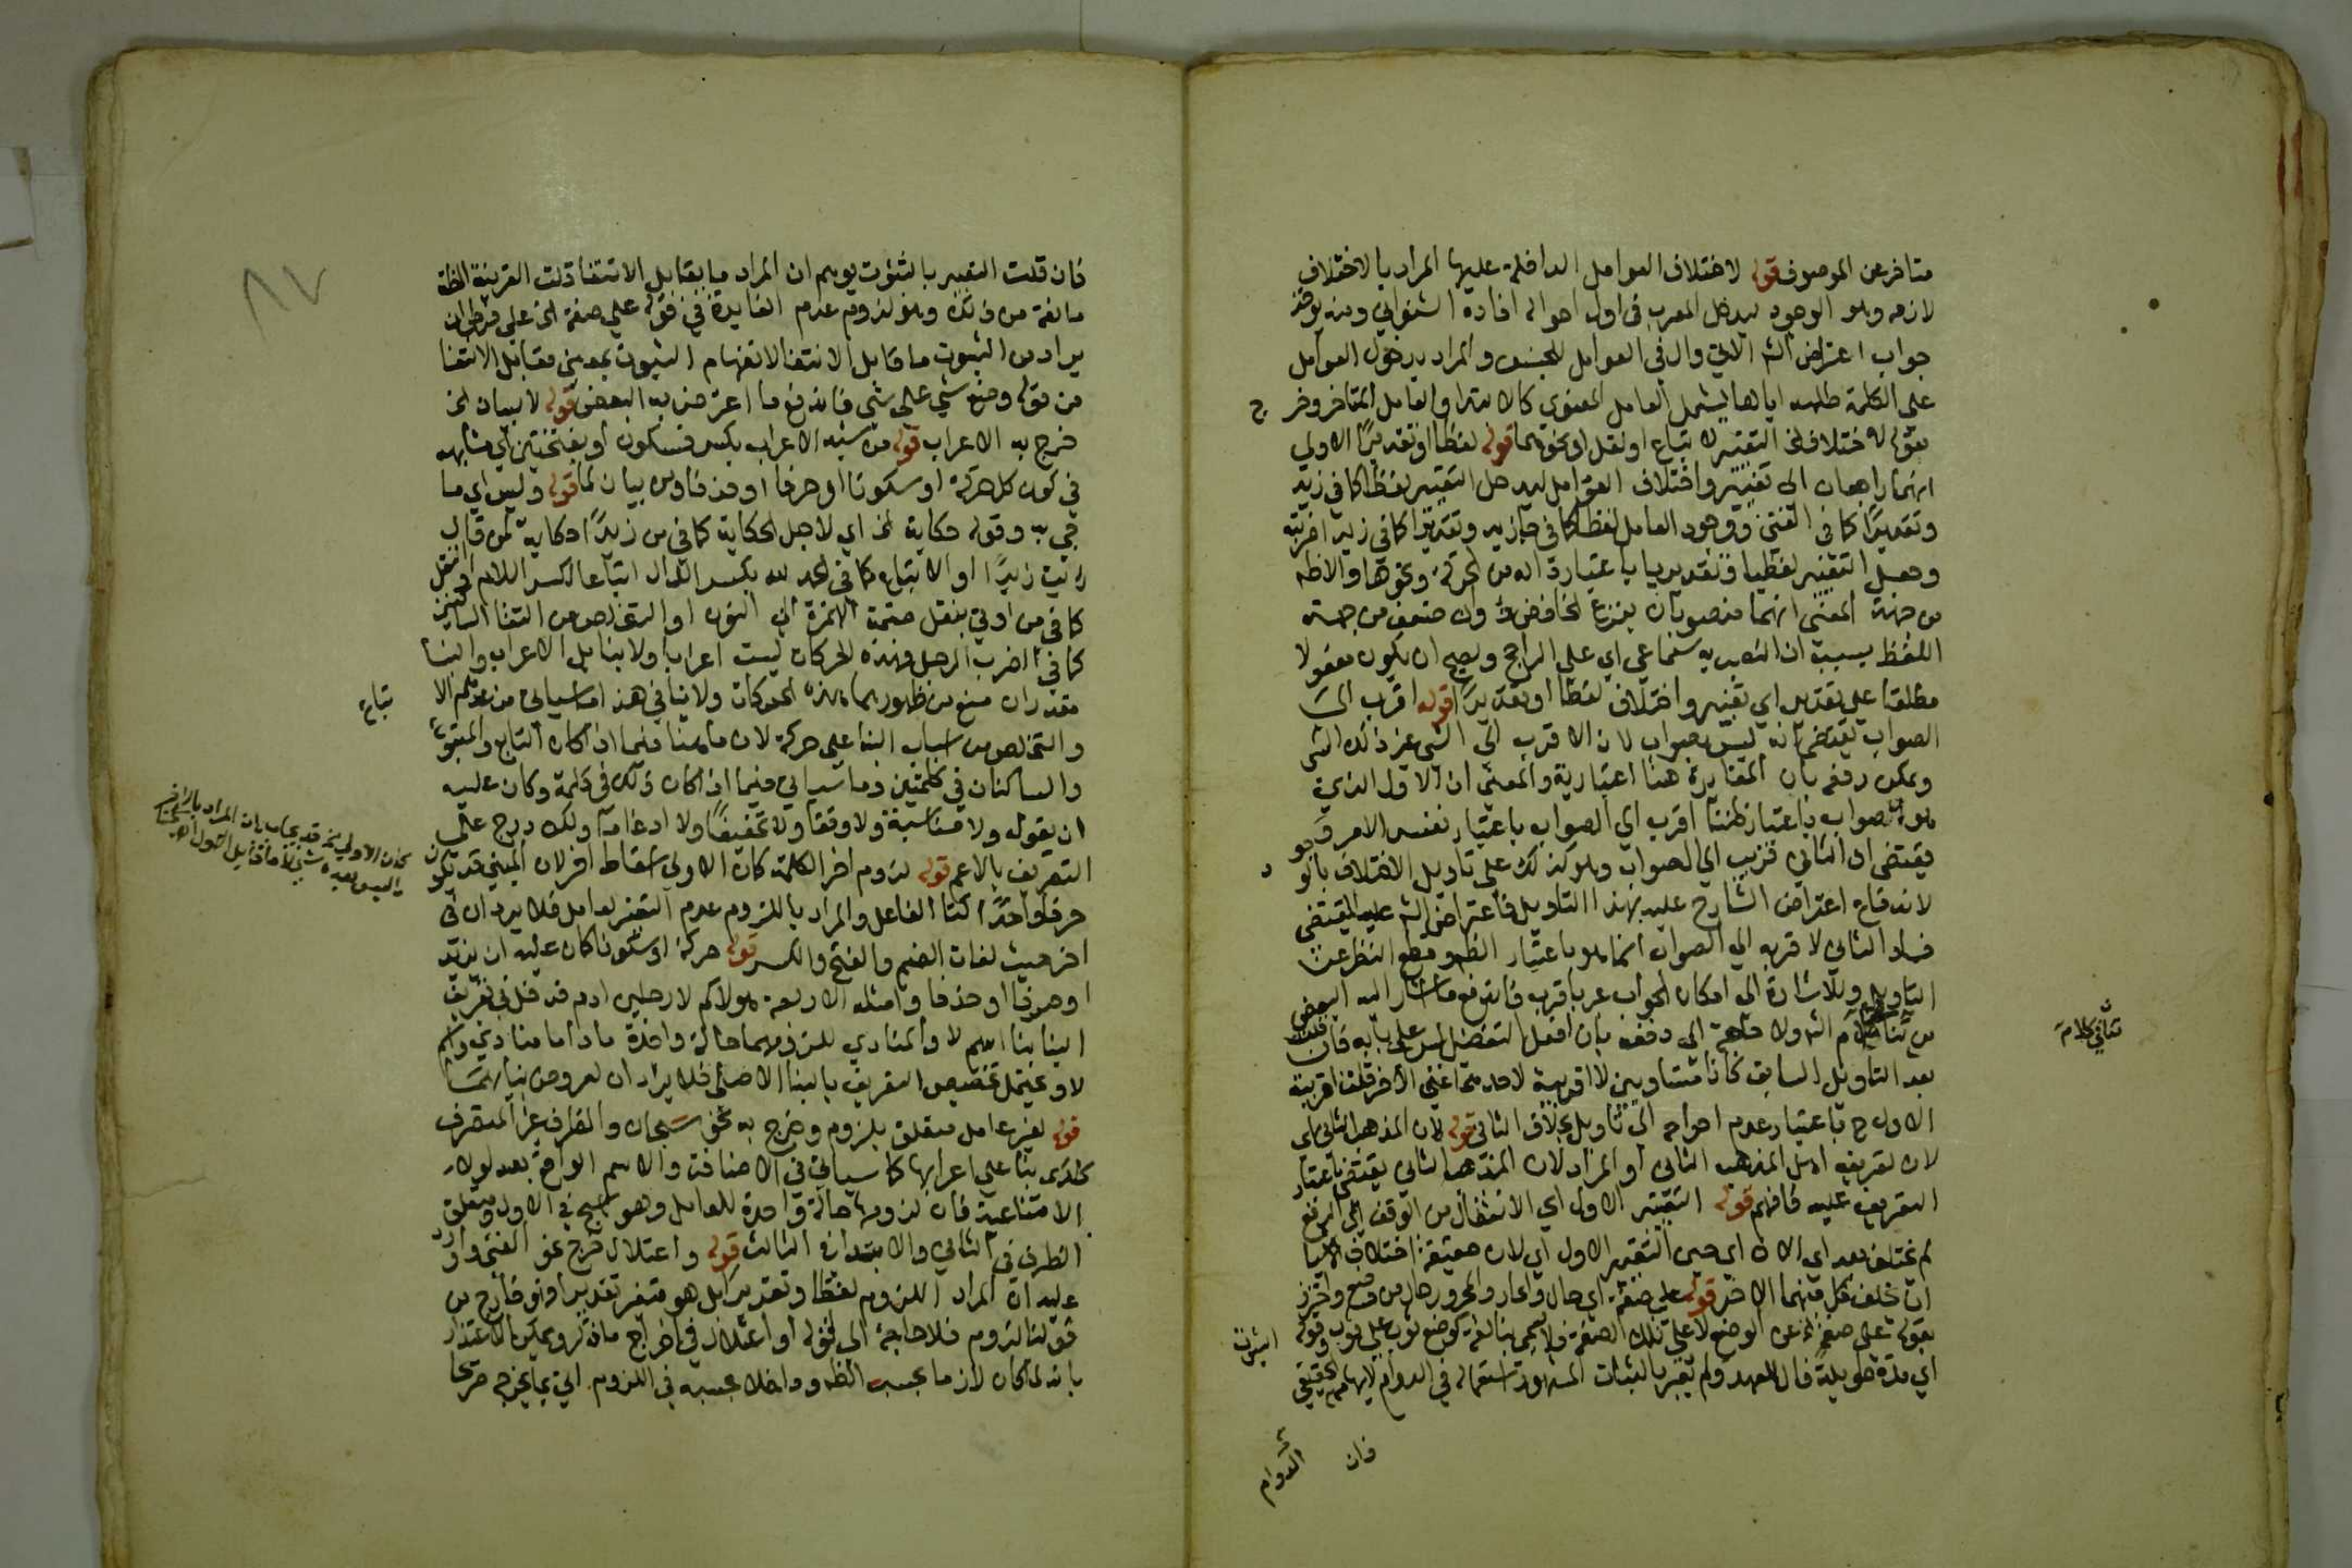 متاخر عن الموصوف قوله لاختلاف العوامل الداخلة عليها المراد بالاختلاف
لازمه وهو الوجود ليدخل المعرب في اول احواله افاده الشنواني ومنه يوخذ
جواب اعتراض الشم الاتي وال في العوامل للجنس والمراد بدخول العوامل
على الكلمة طلبه اياها ليشمل العامل المعنوي كالابتداء والعامل المتاخر وخرج
بقوله لاختلاف الخ التغيير لاتباع او نقل او نحوهما قوله لفظا او تقديرا الاولى
انهما راجعان الى تغيير واختلاف العوامل ليدخل التغيير لفظا كما في زيد
وتقديرا كما في الفتى ووجود العامل لفظا كما في جا زيد وتقديرا كما في زيدا ضربته
وجعل التغيير لفظيا وتقديريا باعتبار داله من الحركة ونحوها والاظهر
من جهة المعنى انهما منصوبان بنزع الخافض وان ضعف من جهة
اللفظ بسبب ان النصب به سماعي اي على الراجح ويصح ان يكون مفعولا
مطلقا على تقدير اي تغيير واختلاف لفظا او تقديرا قوله اقرب الى
الصواب يقتضي انه ليس بصواب لان الاقرب الى الشي غير ذلك الشي
ويمكن دفعه بان المغايرة هنا اعتبارية والمعنى ان الاول الذي
هو الصواب باعتبار ظننا اقرب الى الصواب باعتبار نفس الامر وهو
يقتضي ان الثاني قريب الى الصواب وهو كذلك على تاويل الاختلاف بالوجود
لاندفاع اعتراض الشارح عليه بهذا التاويل فاعتراض الشم عليه المقتضي
فساد الثاني لا قربه الى الصواب انما هو باعتبار الظهر وقطع النظر عن
التاويل وللاشارة الى امكان الجواب عبر باقرب فاندفع ما اشار اليه البعض
من تنافي كلام الشم ولا حاجة الى دفعه بان افعل التفضيل ليس على بابه فان قلت
بعد التاويل السابق كانا متساويين لا اقربية لاحدهما عن الاخر قلت اقربية
الاول ح باعتبار عدم احواجه الى تاويل بخلاف الثاني قوله لان المذهب الثاني اي
لان تعريف اهل المذهب الثاني او المراد لان المذهب الثاني يقتضي باعتبار
التعريف عليه فافهم قوله التغيير الاول اي الانتقال من الوقف الى الرفع
لم تختلف بعد اي الان اي حين التغيير الاول اي لان حقيقة اختلاف الاشيا
ان يخلف كل منهما الاخر قوله على صفة اي حال والجار والمجرور حال من وضع واحترز
بقوله على صفة الخ عن الوضع لا على تلك الصفة فلا يسمى بنا لغة كوضع ثوب على ثوب وقوله
اي مدة طويلة فال للعهد ولم يعبر بالثبات المشهور استعماله في الدوام لايهامه الحقيقي
الثبوت
تنافي كلام
فان
الدوام
٨٧
فان قلت التعبير بالثبوت يوهم ان المراد ما يقابل الانتفا قلت القرينة الظاهرة
مانعة من ذلك وهو لزوم عدم الفايدة في قوله على صفة الخ على فرض ان
يراد من الثبوت ما قابل الانتفا لانفهام الثبوت بمعنى مقابل الانتفا
من قوله وضع شي على شي فاندفع ما اعترض به البعض قوله لا لبيان الخ
خرج به الاعراب قوله من شبه الاعراب بكسر فسكون او بفتحتين اي مشابهه
في كون كل حركة او سكونا او حرفا او حذفا ومن بيان لما قوله وليس اي ما
جي به وقوله حكاية الخ اي لاجل الحكاية كما في من زيدا حكاية لمن قال
رايت زيدا او الاتباع كما في الحمد لله بكسر الدال اتباعا لكسر اللام او النقل
كما في من اوتي بنقل ضمة الهمزة الى النون او التخلص من التقا الساكنين
كما في اضرب الرجل فهذه الحركات ليست اعرابا ولا بنا بل الاعراب والبنا
مقدران منع من ظهورهما هذه الحركات ولا ينافي هذا ما سياتي من عدهم الاتباع
والتخلص من اسباب البنا على حركة لان ما هنا فيما اذا كان التابع والمتبوع
والساكنان في كلمتين وما سياتي فيما اذا كان ذلك في كلمة وكان عليه
ان يقول ولا مناسبة ولا وقفا ولا تخفيفا ولا ادغاما ولكن درج على
التعريف بالاعم قوله لزوم اخر الكلمة كان الاولى اسقاط اخر لان المبني قد يكون
حرفا واحدا كتا الفاعل والمراد باللزوم عدم التغير لعامل فلا يرد ان في
اخر حيث لغات الضم والفتح والكسر قوله حركة او سكونا كان عليه ان يزيد
او حرفا او حذفا وامثلة الاربعة هولا كم لا رجلين ادم فدخل في تعريف
البنا بنا اسم لا والمنادي للزومهما حالة واحدة ماداما منادى واسم
لا ويحتمل تخصيص التعريف بالبنا الاصلي فلا يرد ان لعروض بنائهما
قوله لغير عامل متعلق بلزوم وخرج به نحو سبحان والظرف غير المتصرف
كلدى بنا على اعرابها كما سياتي في الاضافة والاسم الواقع بعد لولا
الامتناعية فان لزومها حالة واحدة للعامل وهو سبح في الاول ومتعلق
الظرف في الثاني والابتدا في الثالث قوله واعتلال خرج نحو الفتى واورد
عليه ان المراد اللزوم لفظا وتقديرا بل هو متغير تقديرا فهو خارج من
قولنا لزوم فلا حاجة الى قوله او اعتلال في اخراج ما ذكر ويمكن الاعتذار
بانه لما كان لازما بحسب الظهر وداخلا بحسبه في اللزوم اتى بما يخرجه صريحا
تباع